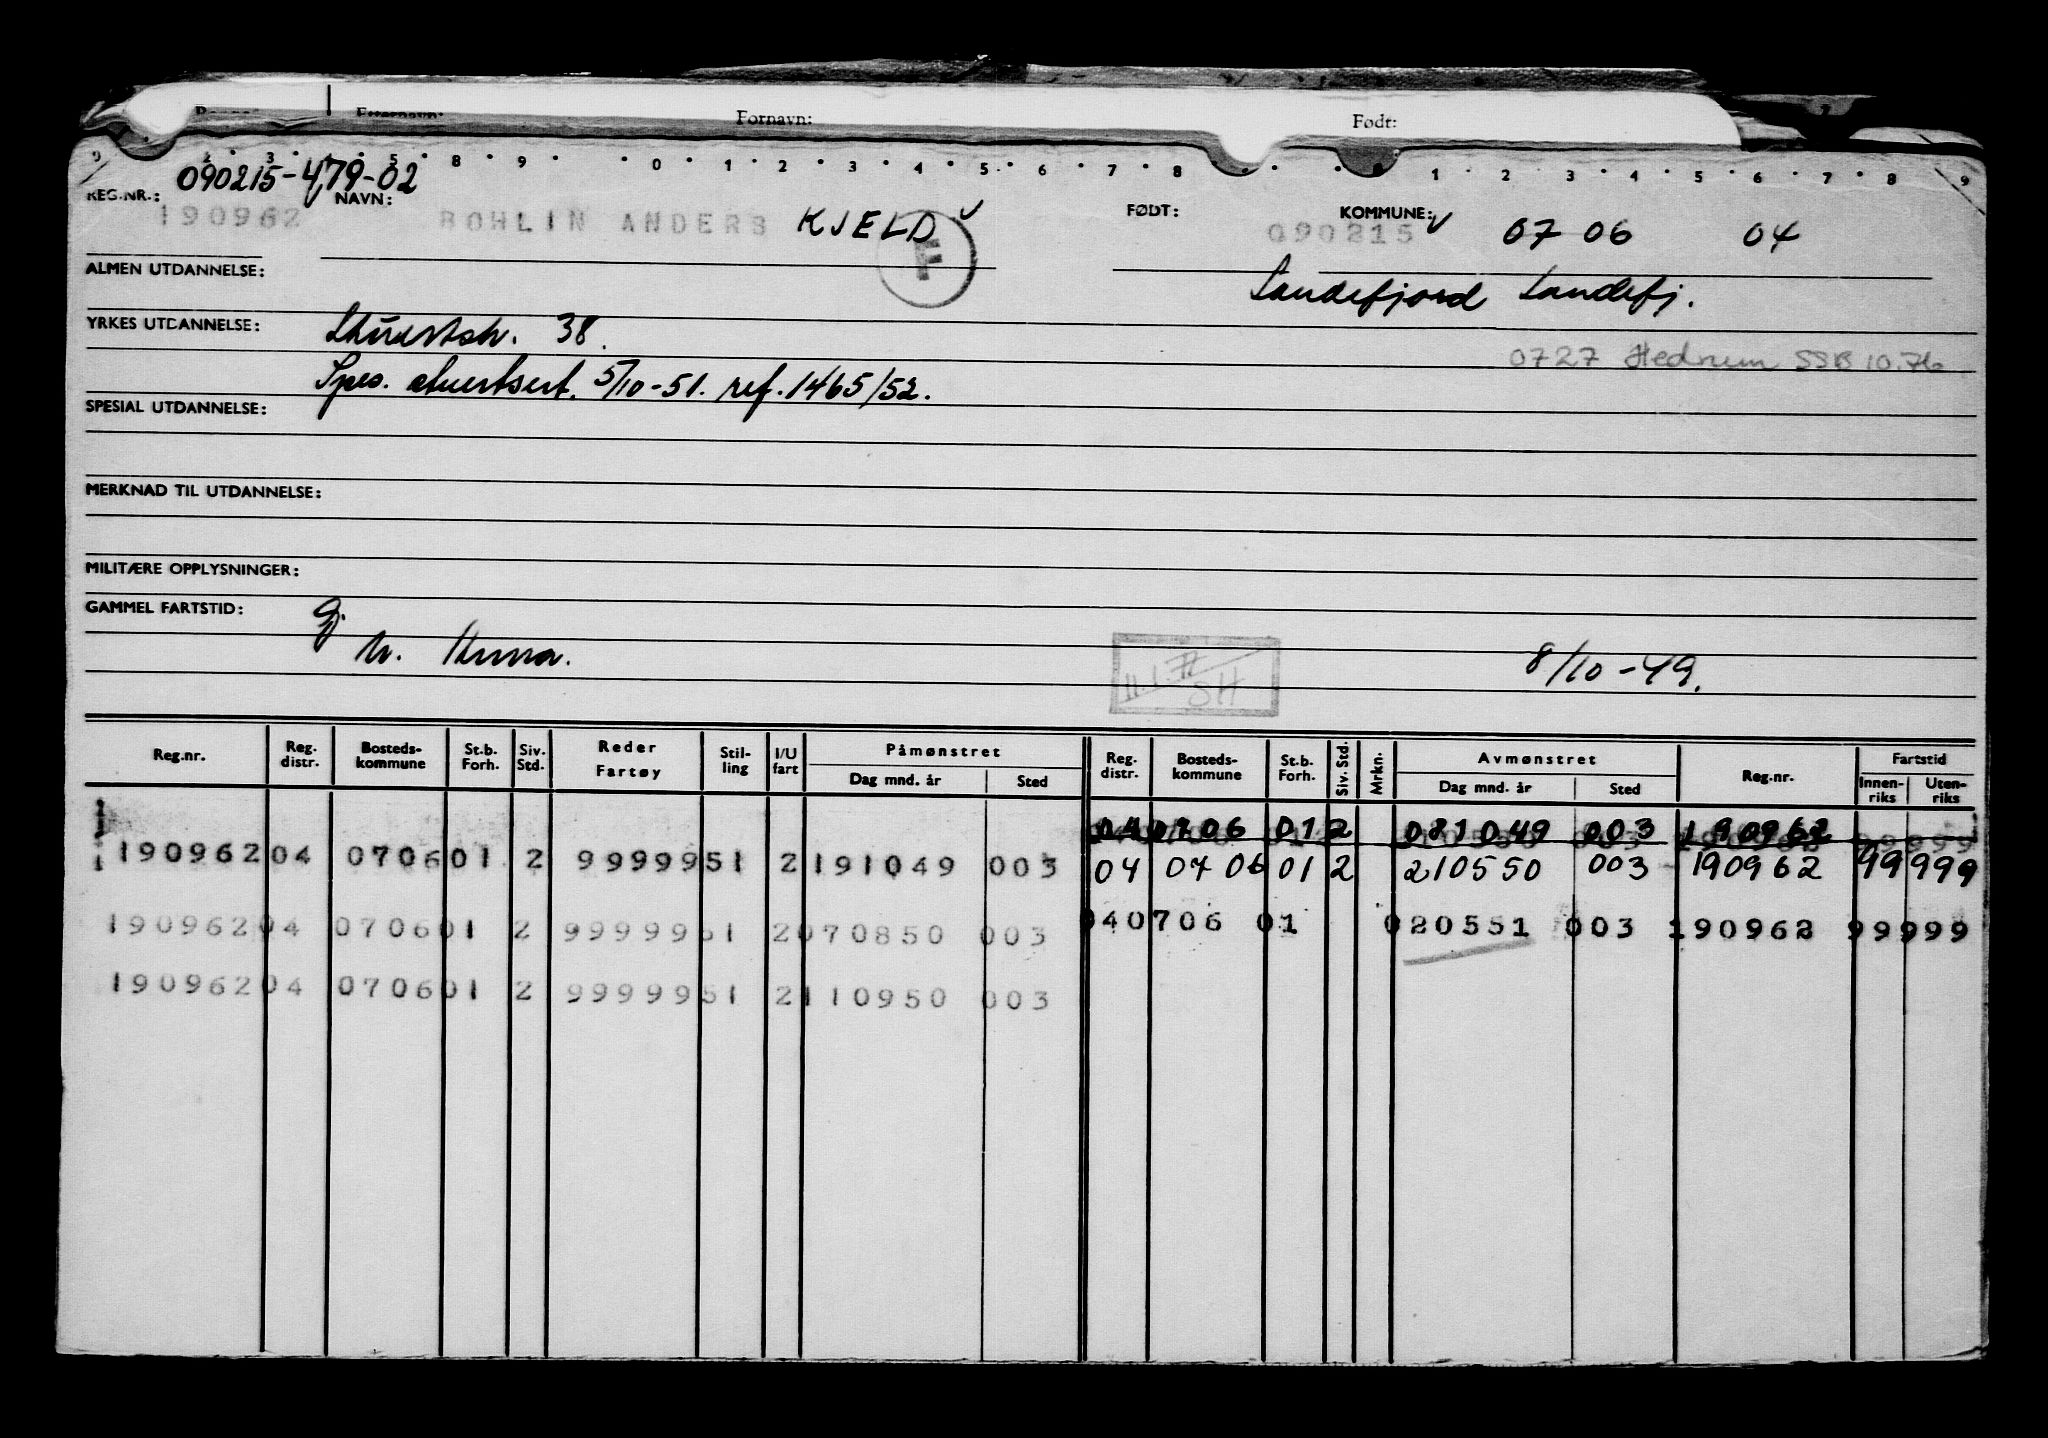 Fornavn: Født:
2 3 5 8 9 0 1 2 3 4 5 6 7 8 1 2 3 4 5 6 7 8 9
090215-479-02
REG.NR.: NAVN: FØDT: KOMMUNE:
190962 BOHLIN ANDERS KJELD 090215 07 06 04
F
ALMEN UTDANNELSE: Sandefjord Sandefj.
YRKES UTDANNELSE: Stuertsk. 38.
0727 Hedrum SSB 10.76
Spes. stuertsert. 5/10-51. ref. 1465/52.
SPESIAL UTDANNELSE:
MERKNAD TIL UTDANNELSE:
MILITÆRE OPPLYSNINGER:
GAMMEL FARTSTID:
M. 8/10-49.
11.1.77
SH
Reg.nr. Reg. distr. Bosteds-kommune St.b. Forh. Siv. Std. Reder Fartøy Stil-ling I/U fart Påmønstret Dag mnd. år Sted Reg. distr. Bosteds-kommune St.b. Forh. Siv. Std. Mrkn. Avmønstret Dag mnd. år Sted Reg.nr. Fartstid Innen-riks Uten-riks
04 0706 01 2 081049 003 190962
190962 04 0706 01 2 99999 51 2 191049 003 04 0706 01 2 210550 003 190962 99 999
190962 04 0706 01 2 99999 51 2 070850 003 04 0706 01 020551 003 190962 99 999
190962 04 0706 01 2 99999 51 2 110950 003